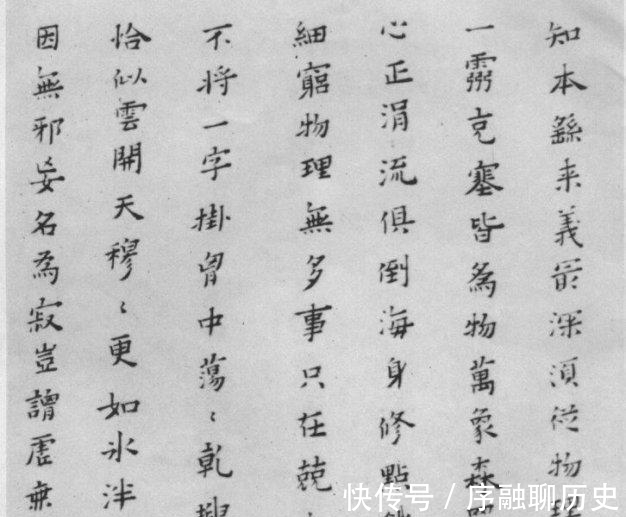 知本繇来義㝡深須從物理
一霛克塞皆為物萬象森
心正涓流俱倒海身修點
細窮物理無多事只在兢
不将一字掛胷中蕩〻乾
恰似雲開天穆〻更如氷泮
因無邪妄名為寂豈謂虚無
快传号 / 序融聊历史